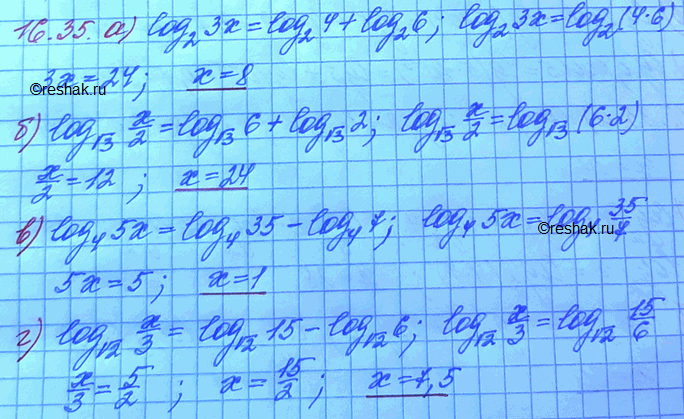 16.35. а) log₂ 3x = log₂ 4 + log₂ 6; log₂ 3x = log₂ (4·6)
3x = 24; x = 8
©reshak.ru
б) log_√3 x/2 = log_√3 6 + log_√3 2; log_√3 x/2 = log_√3 (6·2)
x/2 = 12; x = 24
в) log₄ 5x = log₄ 35 - log₄ 7; log₄ 5x = log₄ 35/7
©reshak.ru
5x = 5; x = 1
г) log_√2 x/3 = log_√2 15 - log_√2 6; log_√2 x/3 = log_√2 15/6
x/3 = 5/2; x = 15/2; x = 7,5